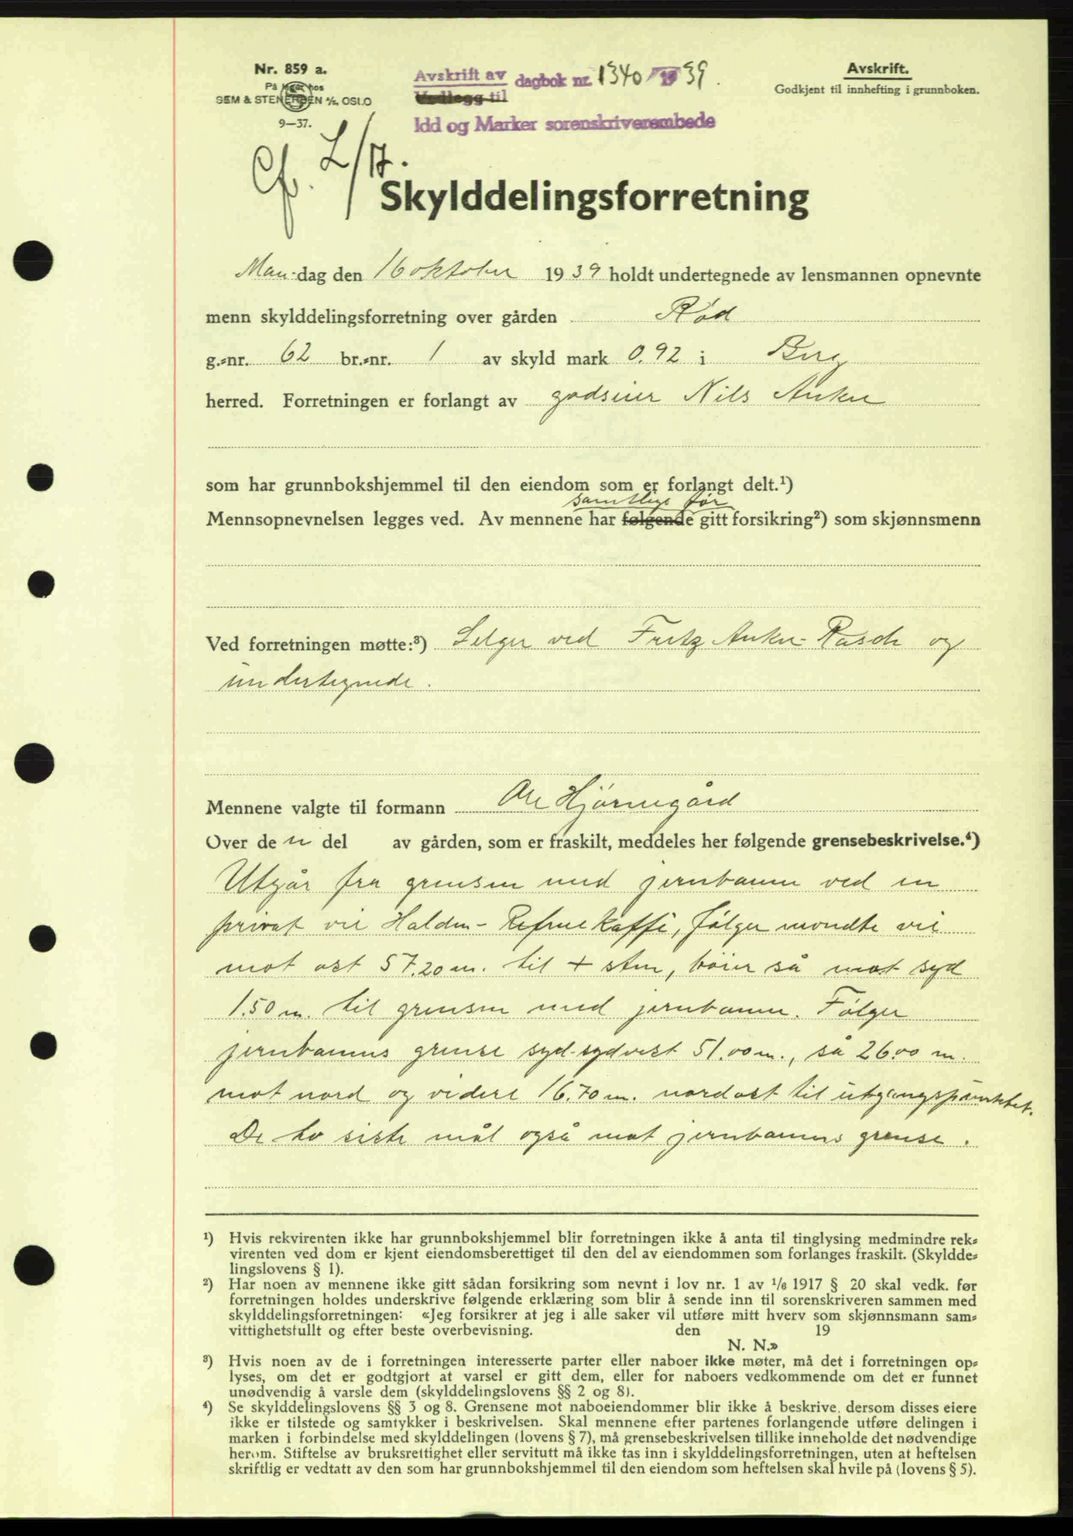 Nr. 859 a.
På lager hos
SEM & STENERSEN A/S, OSLO
9—37.
Avskrift av dagbok nr. 1340 1939.
Vedlegg til
Idd og Marker sorenskriverembede
Avskrift.
Godkjent til innhefting i grunnboken.
Cf.
Skylddelingsforretning
Man-dag den 16 oktober 1939 holdt undertegnede av lensmannen opnevnte
menn skylddelingsforretning over gården Rød
g.-nr. 62 br.-nr. 1 av skyld mark 0.92 i Berg
herred. Forretningen er forlangt av godseier Nils Anker
som har grunnbokshjemmel til den eiendom som er forlangt delt.¹)
samtlige før
Mennsopnevnelsen legges ved. Av mennene har følgende gitt forsikring²) som skjønnsmenn
Ved forretningen møtte:³) Selger ved Fritz Anker-Rasch og
undertegnede.
Mennene valgte til formann Ole Hjørnegård
Over de n del av gården, som er fraskilt, meddeles her følgende grensebeskrivelse.⁴)
Utgår fra grensen med jernbanen ved en
privat vei Halden- kaffe, følger nevndte vei
mot ost 57.20 m. til + sten, bøier så mot syd
1.50 m. til grensen med jernbanen. Følger
jernbanens grense syd-sydvest 51.00 m., så 26.00 m.
mot nord og videre 16.70 m. nordost til utgangspunktet.
De to siste mål også mot jernbanens grense.
¹) Hvis rekvirenten ikke har grunnbokshjemmel blir forretningen ikke å anta til tinglysing medmindre rek-
virenten ved dom er kjent eiendomsberettiget til den del av eiendommen som forlanges fraskilt. (Skyldde-
lingslovens § 1).
²) Har noen av mennene ikke gitt sådan forsikring som nevnt i lov nr. 1 av 1/6 1917 § 20 skal vedk. før
forretningen holdes underskrive følgende erklæring som blir å sende inn til sorenskriveren sammen med
skylddelingsforretningen: «Jeg forsikrer at jeg i alle saker vil utføre mitt hverv som skjønnsmann sam-
vittighetsfullt og efter beste overbevisning. den 19
N. N.»
³) Hvis noen av de i forretningen interesserte parter eller naboer ikke møter, må det i forretningen op-
lyses, om det er godtgjort at varsel er gitt dem, eller for naboers vedkommende om det er funnet
unødvendig å varsle dem (skylddelingslovens §§ 2 og 8).
⁴) Se skylddelingslovens §§ 3 og 8. Grensene mot naboeiendommer blir ikke å beskrive, dersom disses eiere
ikke er tilstede og samtykker i beskrivelsen. Skal mennene efter partenes forlangende utføre delingen i
marken i forbindelse med skylddelingen (lovens § 7), må grensebeskrivelsen tillike inneholde det nødvendige
herom. Stiftelse av bruksrettighet eller servitutt må ikke tas inn i skylddelingsforretningen, uten at heftelsen
skriftlig er vedtatt av den som har grunnbokshjemmel til den eiendom som heftelsen skal hvile på (lovens § 5).